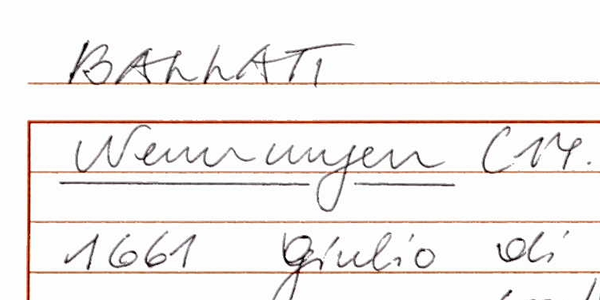 BALLATI
Nennungen (17.
1661 Giulio di